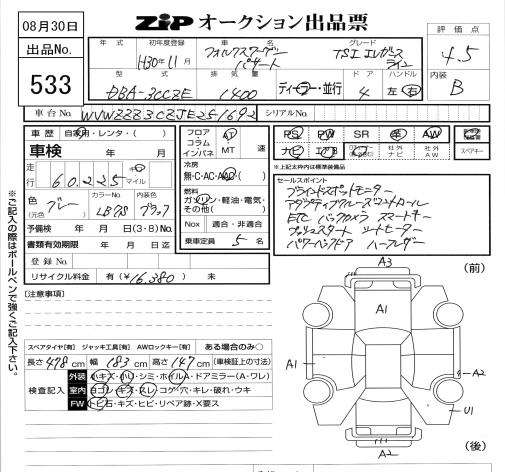 08月30日
ZiP オークション出品票
出品No.
533
年式
初年度登録
H30年11月
車名
フォルクスワーゲン
パサート
グレード
TSI エレガンス
ライン
評価点
4.5
型式
DBA-3CCZE
排気量
1400
ディーラー・並行
ドア
4
ハンドル
左 右
内装
B
車台No.
WVWZZZ3CZJE251692
シリアルNo.
車歴 自家用・レンタ・( )
車検 年 月
走行
60,225
キロ
マイル
色
グレー
(元色 )
カラーNo.
内装色
ブラック
予備検 年 月 日(3・8)No.
書類有効期限 年 月 日迄
登録No.
リサイクル料金 有(¥16,380) 未
フロア
コラム
インパネ
AT
MT 速
冷房
無・C・AC・AAC・( )
燃料
ガソリン・軽油・電気・
その他( )
Nox 適合・非適合
乗車定員 5 名
PS PW SR 革 AW
ナビ エアB
社外ナビ 社外AW
スペアキー
*上記太枠内は標準装備品
セールスポイント
ブラインドスポットモニター
アダプティブクルーズコントロール
ETC バックカメラ スマートキー
プッシュスタート シートヒーター
パワーバックドア ハーフレザー
※ご記入の際はボールペンで強くご記入下さい。
[注意事項]
スペアタイヤ[有] ジャッキ工具[有] AWロックキー[有] ある場合のみ○
長さ478cm 幅183cm 高さ147cm (車検証上の寸法)
検査記入
外装 小キズ・小ヘコ・シミ・ホイルA・ドアミラー(A・ワレ)
室内 ヨゴレ・キズ・スレ・コゲ・穴・キレ・破れ・ウキ
FW トビ石・キズ・ヒビ・リペア跡・X要ス
A3
(前)
A1
A1
A2
U1
A2
(後)